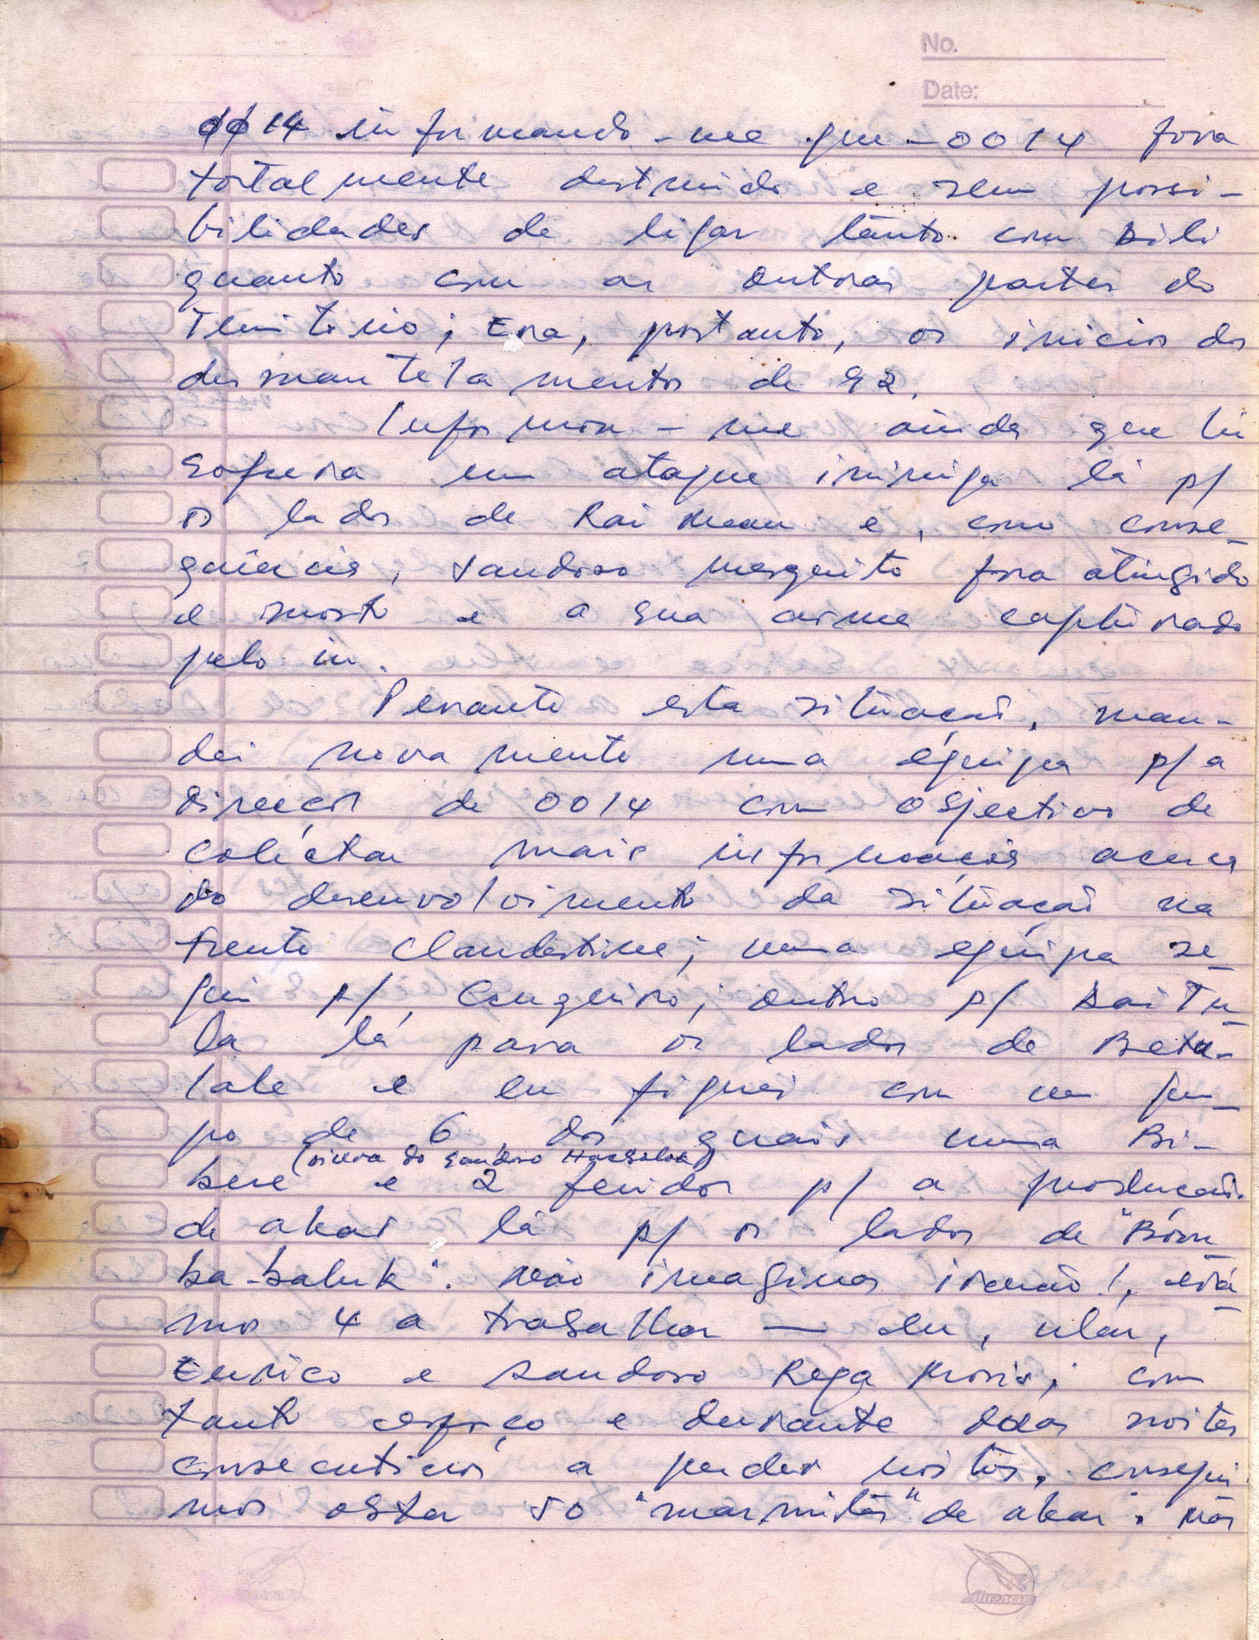 No.
Date:
0014 informando-me que - 0014 fora
totalmente destruido e sem possi-
bilidades de ligar tanto com Dili
quanto com as outras partes do
Território; Era, portanto, o inicio do
desmantelamento de 92.
Informou-me ainda que
sofrera um ataque inimigo lá p/
os lados de e, como conse-
quência, Sandoro mesquita fora atingido
e morto e a sua arma capturado
pelo in.
Perante esta situação, man-
dei novamente uma équipa p/ a
direcção de 0014 com objectivo de
coléctar mais informações acerca
do desenvolvimento da situação na
Frente Clandestina; uma equipa se-
guiu p/ ; outro p/
la lá para os lados de Beta-
lale e eu fiquei com um gru-
po de 6, dos quais uma Bi-
(viuva do Sandoro )
bere e 2 feridos p/ a produção
de akar lá p/ os lados de "Bom
ba-baluk". Não imaginas irmão!, está-
mos 4 a trabalhar — eu, ular,
Eurico e Sandoro Rega ; com
tanto esforço e durante duas noites
consecutivos a perder noites, consegui
mos obter 50 "marmitas" de akar. Nós